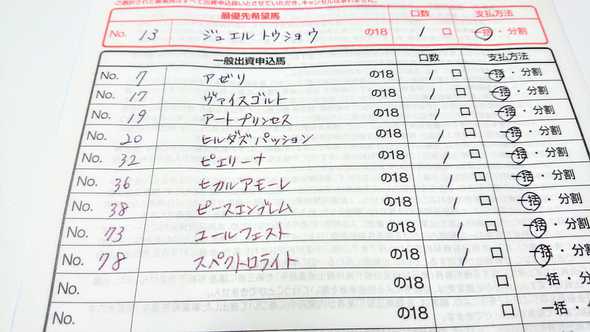 ご選択された募集馬はすべて出資申込扱いとさせていただき、キャンセルは承れません。
最優先希望馬 口数 支払方法
No. 13 ジュエルトウショウ の18 1 口 一括・分割
一般出資申込馬 口数 支払方法
No. 7 アゼリ の18 1 口 一括・分割
No. 17 ヴァイスゴルト の18 1 口 一括・分割
No. 19 アートプリンセス の18 1 口 一括・分割
No. 20 ヒルダズパッション の18 1 口 一括・分割
No. 32 ピエリーナ の18 1 口 一括・分割
No. 36 ヒカルアモーレ の18 1 口 一括・分割
No. 38 ピースエンブレム の18 1 口 一括・分割
No. 73 ユールフェスト の18 1 口 一括・分割
No. 78 スペクトロライト の18 1 口 一括・分割
No. の18 口 一括・分
No. の18 口 一括・